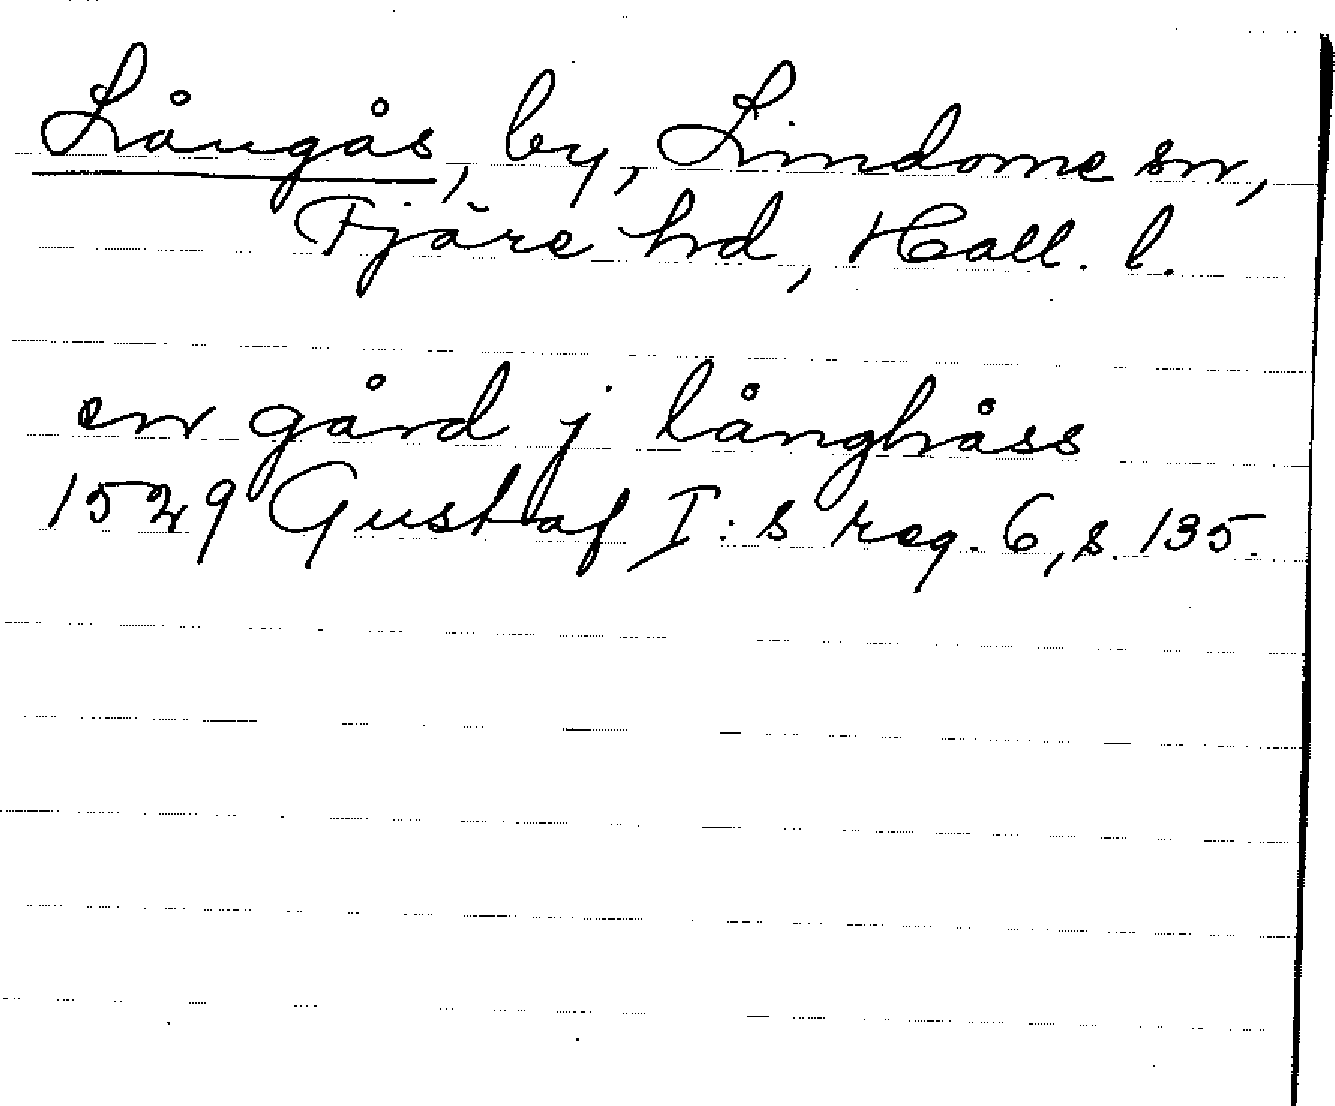 Långås, by, Lindome sn,
Fjäre hd, Hall. l.
en gård j långhåss
1529 Gustaf I:s reg. 6, s. 135.